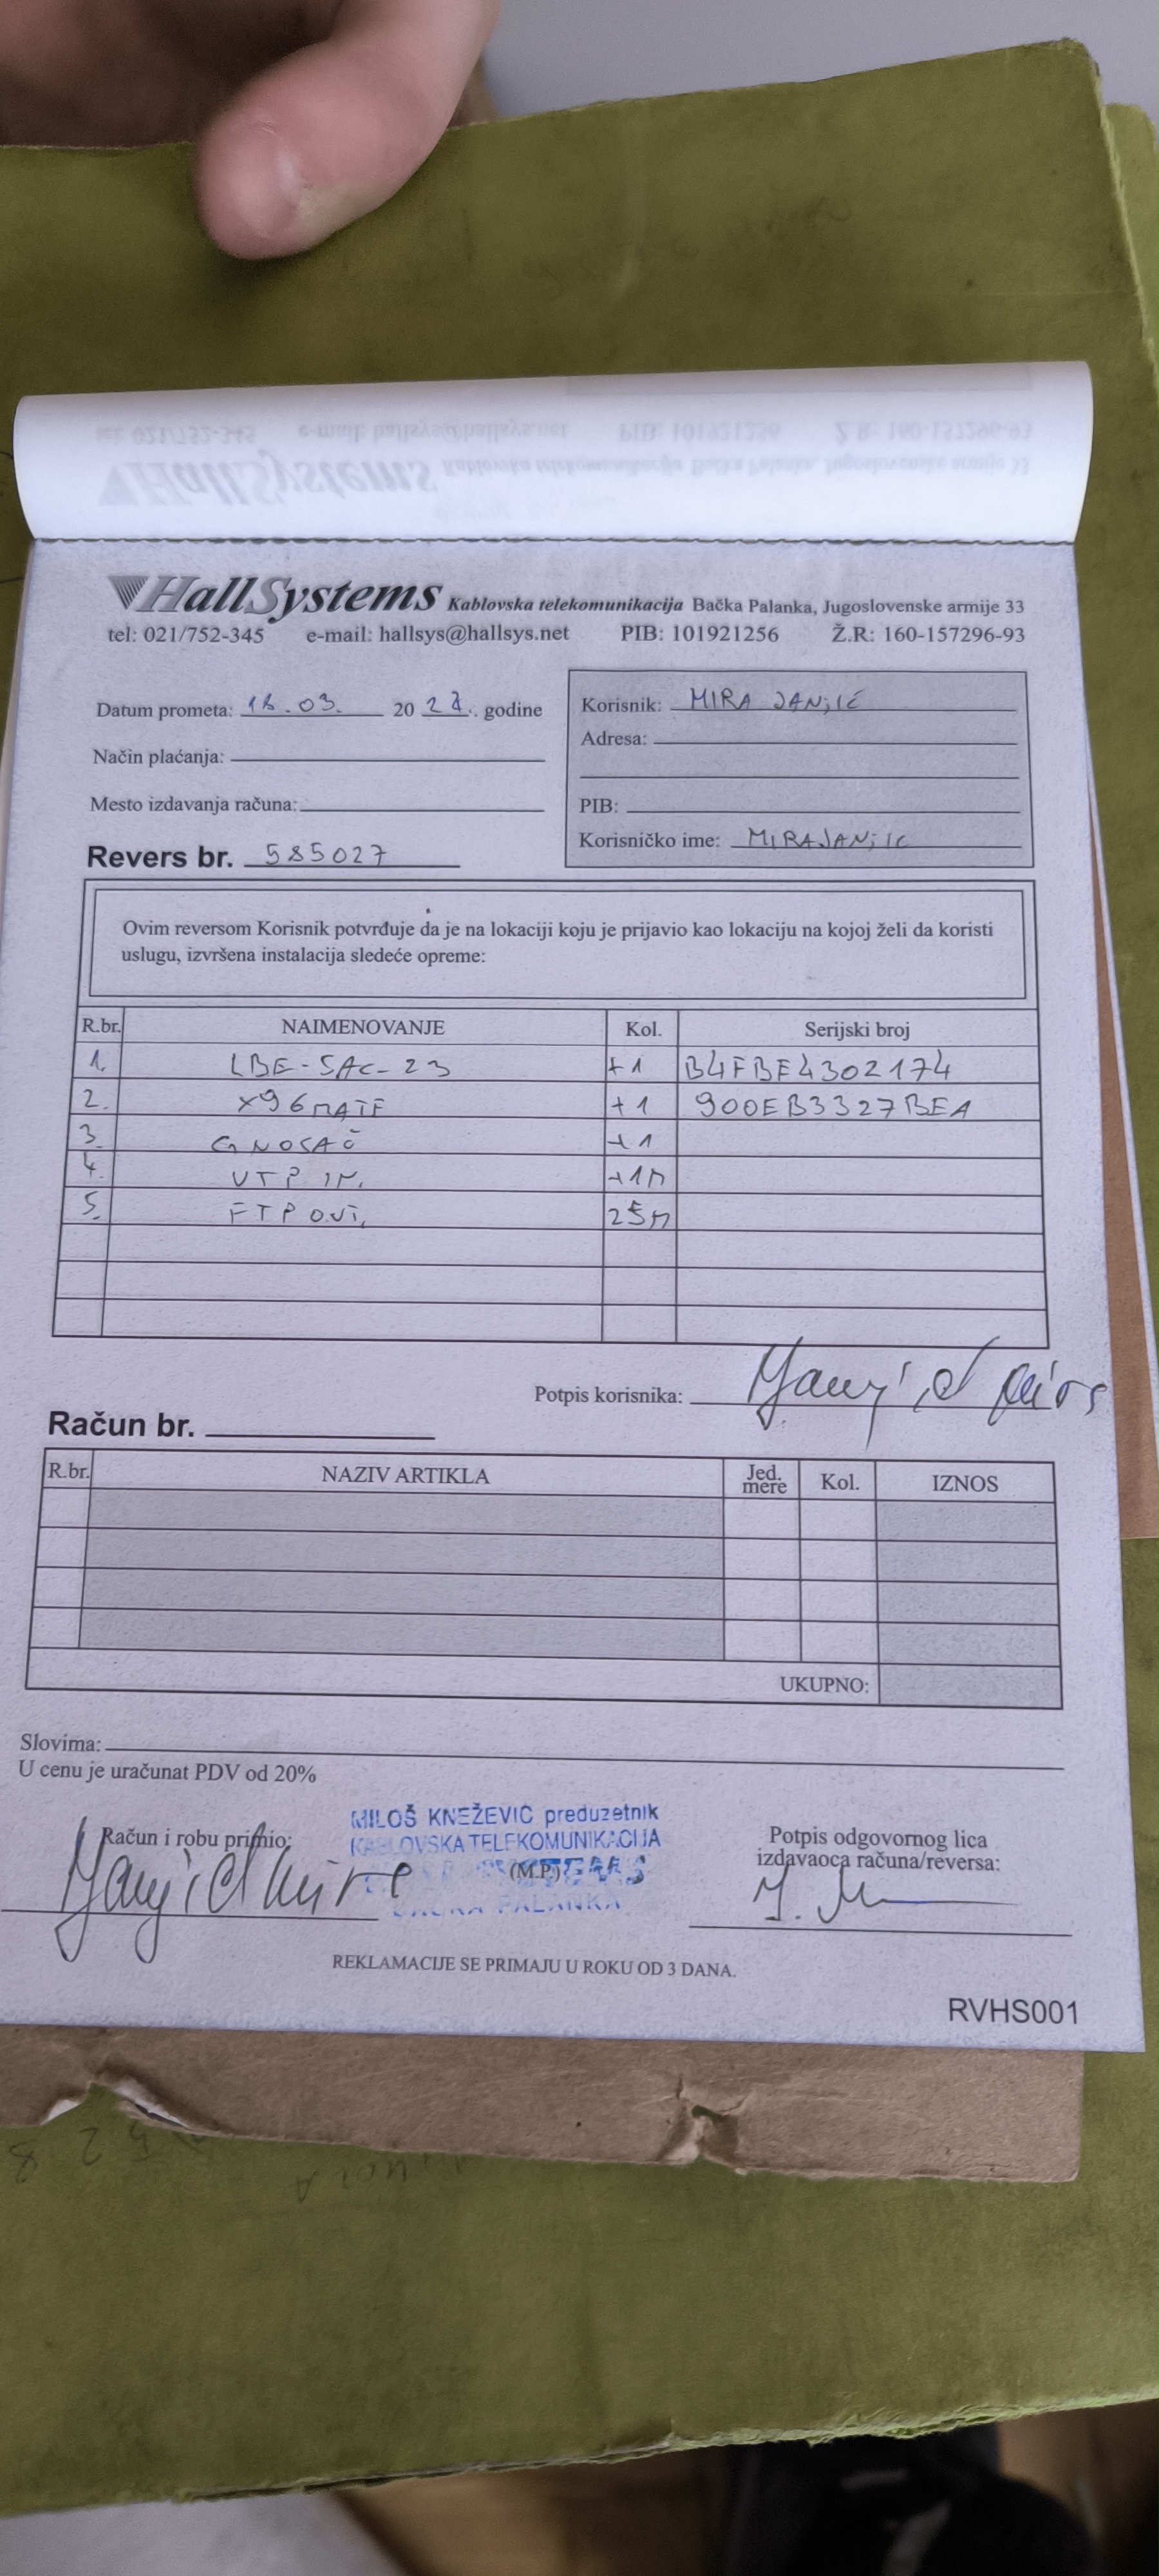 HallSystems Kablovska telekomunikacija Bačka Palanka, Jugoslovenske armije 33
tel: 021/752-345 e-mail: hallsys@hallsys.net PIB: 101921256 Ž.R: 160-157296-93
Datum prometa: 18.03. 20 22. godine
Način plaćanja:
Mesto izdavanja računa:
Revers br. 585027
Korisnik: MIRA JANJIĆ
Adresa:
PIB:
Korisničko ime: MIRAJANJIC
Ovim reversom Korisnik potvrđuje da je na lokaciji koju je prijavio kao lokaciju na kojoj želi da koristi
uslugu, izvršena instalacija sledeće opreme:
R.br. NAIMENOVANJE Kol. Serijski broj
1. LBE-5AC-23 +1 B4FBE4302174
2. X96MATE +1 900EB3327BEA
3. G NOSAČ +1
4. UTP IN. +1m
5. FTP OUT. 25m
Potpis korisnika: Janjić Mira
Račun br.
R.br. NAZIV ARTIKLA Jed. mere Kol. IZNOS
UKUPNO:
Slovima:
U cenu je uračunat PDV od 20%
MILOŠ KNEŽEVIĆ preduzetnik
KABLOVSKA TELEKOMUNIKACIJA
BAČKA PALANKA
Račun i robu primio:
Janjić Mira
(M.P.)
Potpis odgovornog lica
izdavaoca računa/reversa:
REKLAMACIJE SE PRIMAJU U ROKU OD 3 DANA.
RVHS001